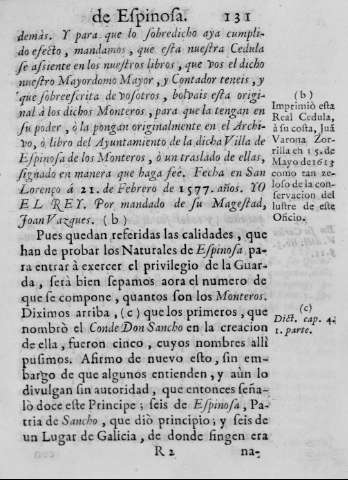 de Espinosa. 131
demàs. Y para que lo sobredicho aya cumpli-
do efecto, mandamos, que esta nuestra Cedula
se assiente en los nuestros libros, que vos el dicho
nuestro Mayordomo Mayor, y Contador teneis, y
que sobreescrita de vosotros, bolvais esta origi-
nal à los dichos Monteros, para que la tengan en
su poder, ò la pongan originalmente en el Archi-
vo, ò libro del Ayuntamiento de la dicha Villa de
Espinosa de los Monteros, ò un traslado de ellas,
signado en manera que haga feè. Fecha en San
Lorenço à 21. de Febrero de 1577. años. YO
EL REY. Por mandado de su Magestad,
Joan Vazques. (b)
Pues quedan referidas las calidades, que
han de probar los Naturales de Espinosa pa-
ra entrar à exercer el privilegio de la Guar-
da, serà bien sepamos aora el numero de
que se compone, quantos son los Monteros.
Diximos arriba, (c) que los primeros, que
nombrò el Conde Don Sancho en la creacion
de ella, fueron cinco, cuyos nombres allì
pusimos. Afirmo de nuevo esto, sin em-
bargo de que algunos entienden, y aùn lo
divulgan sin autoridad, que entonces seña-
lò doce este Principe; seis de Espinosa, Pa-
tria de Sancho, que diò principio; y seis de
un Lugar de Galicia, de donde fingen era
R 2 na-
(b)
Imprimiò esta
Real Cedula,
à su costa, Juã
Varona Zor-
rilla en 15. de
Mayo de 1613
como tan ze-
loso de la con-
servacion del
lustre de este
Oficio.
(c)
Dict. cap. 4.
1. parte.